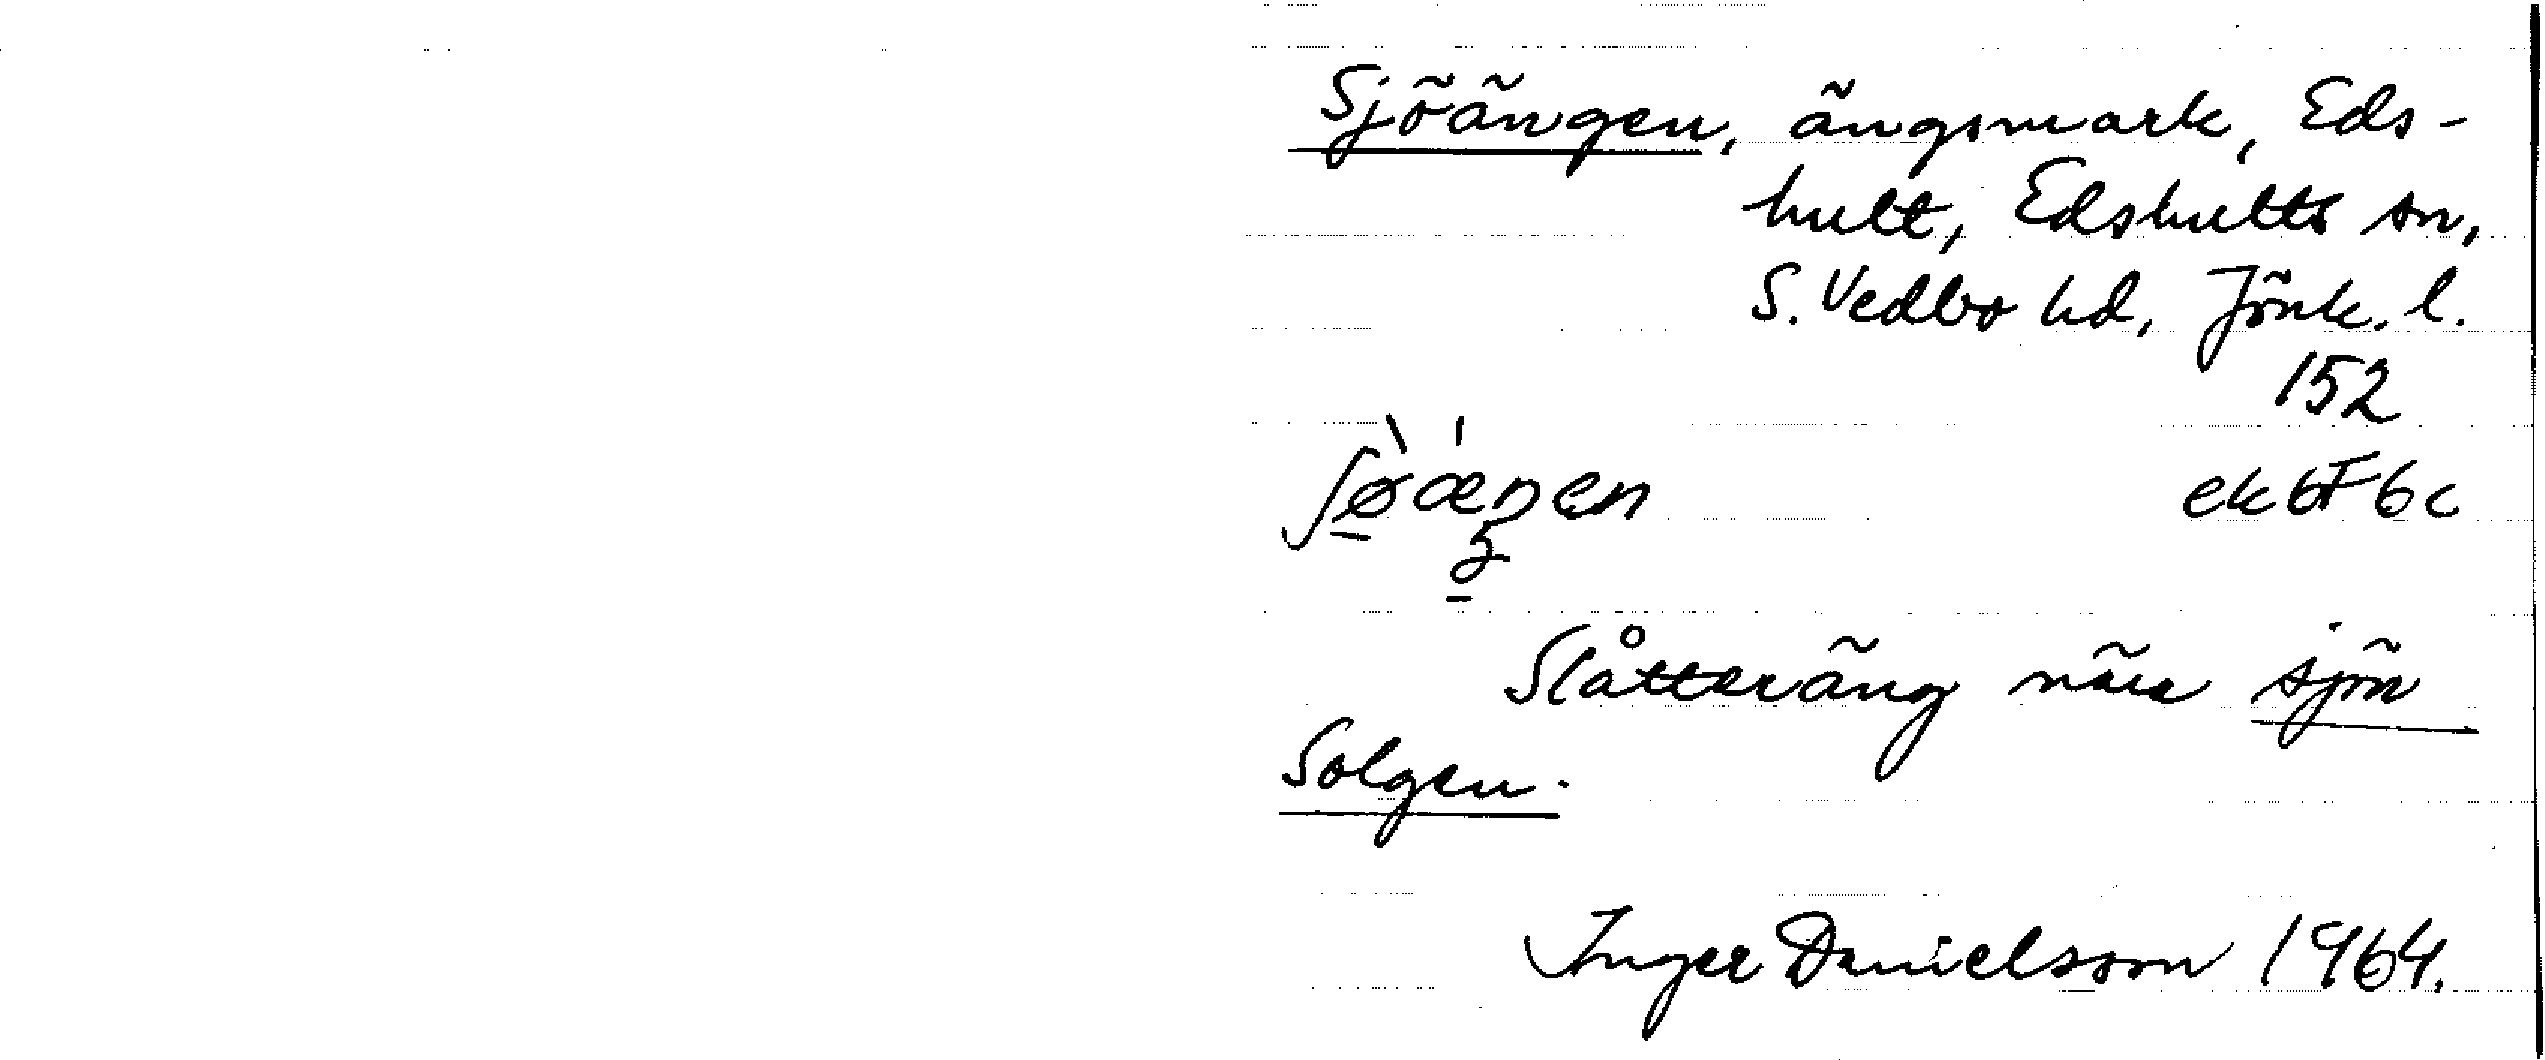 Sjöängen, ängsmark, Eds-
hult, Edshults sn,
S. Vedbo hd, Jönk. l.
152
ek 6F 6c
Slåtteräng nära sjön
Solgen.
Inger Danielsson 1964.